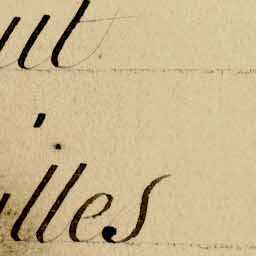 ut
illes